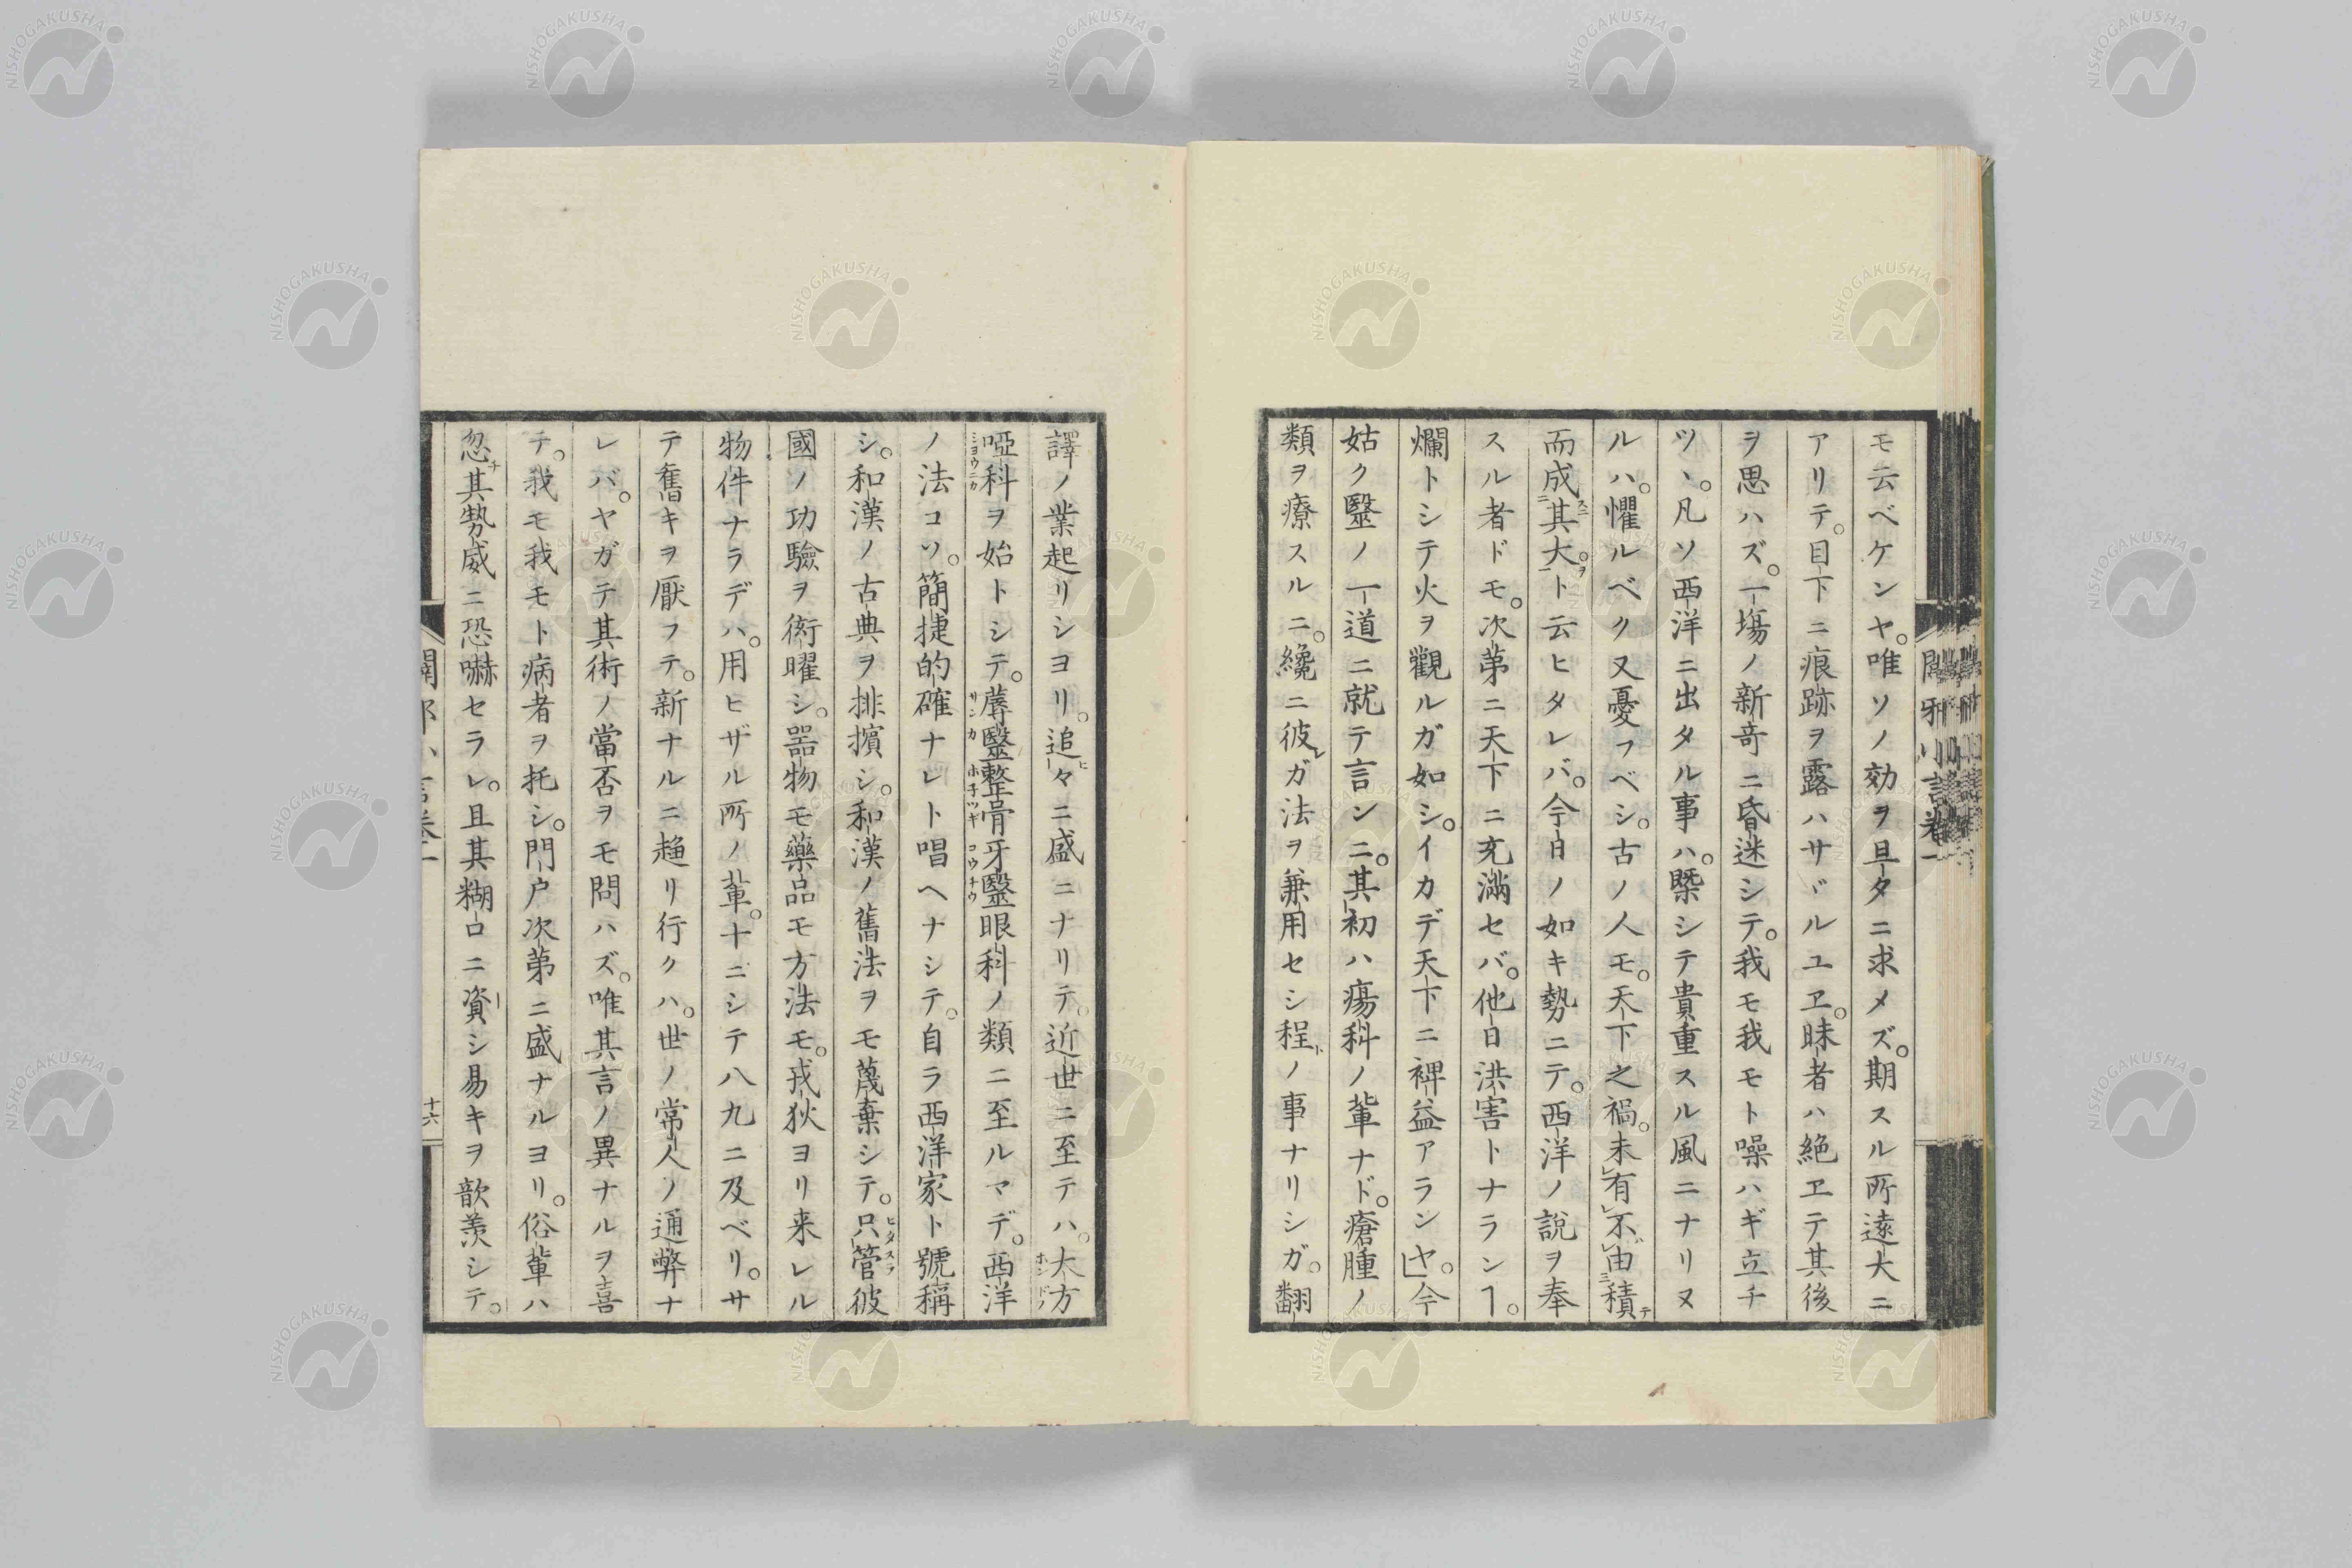 モ云ベケンヤ。唯ソノ効ヲ早タニ求メズ。期スル所遠大ニ
アリテ。目下ニ痕跡ヲ露ハサヾルユヱ。昧者ハ絶ヱテ其後
ヲ思ハズ。一塲ノ新奇ニ昏迷シテ。我モ我モト噪ハギ立チ
ツヽ。凡ソ西洋ニ出タル事ハ。槩シテ貴重スル風ニナリヌ
ルハ。懼ルベク又憂フベシ。古ノ人モ。天下之禍。未有不由積テ
而成其大ヲト云ヒタレバ。今日ノ如キ勢ニテ。西洋ノ說ヲ奉
スル者ドモ。次第ニ天下ニ充滿セバ。他日洪害トナランヿ。
爛トシテ火ヲ觀ルガ如シ。イカデ天下ニ裨益アランヤ。今
姑ク毉ノ一道ニ就テ言ンニ。其初ハ瘍科ノ輩ナド。瘡腫ノ
類ヲ療スルニ。纔ニ彼レガ法ヲ兼用セシ程ノ事ナリシガ。翻
闢邪小言卷一
譯ノ業起リシヨリ。追々ニ盛ニナリテ。近世ニ至テハ。大方
啞科ヲ始トシテ。蓐毉整骨牙毉眼科ノ類ニ至ルマデ。西洋
ノ法コソ。簡捷的確ナレト唱ヘナシテ。自ラ西洋家ト號稱
シ。和漢ノ古典ヲ排擯シ。和漢ノ舊法ヲモ蔑棄シテ。只管彼
國ノ功驗ヲ衒曜シ。噐物モ藥品モ方法モ。戎狄ヨリ来レル
物件ナラデハ。用ヒザル所ノ輩。十ニシテ八九ニ及ベリ。サ
テ舊キヲ厭フテ。新ナルニ趨リ行クハ。世ノ常人ノ通弊ナ
レバ。ヤガテ其術ノ當否ヲモ問ハズ。唯其言ノ異ナルヲ喜
テ。我モ我モト病者ヲ托シ。門戶次第ニ盛ナルヨリ。俗輩ハ
忽チ其勢威ニ恐嚇セラレ。且其糊口ニ資シ易キヲ歆羨シテ。
十六